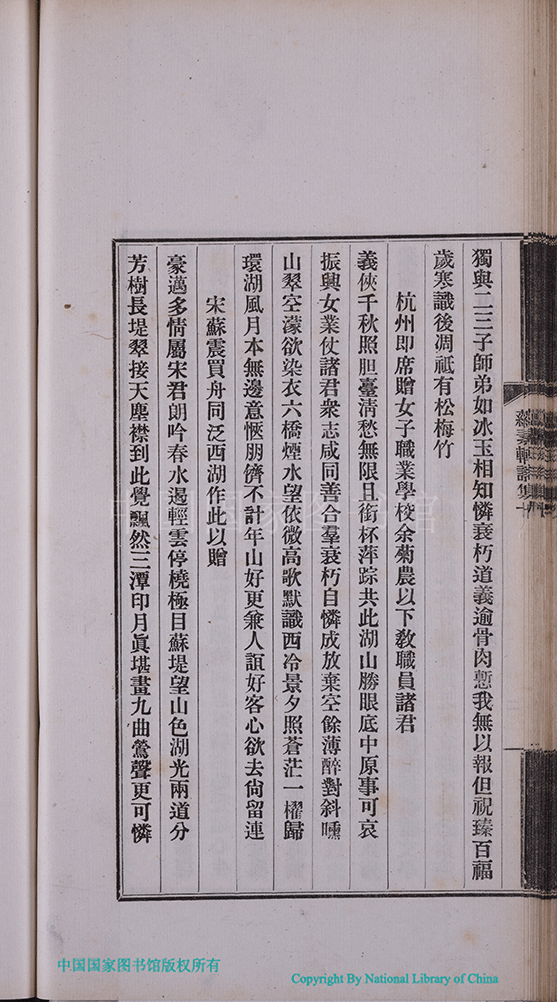 獨與二三子師弟如冰玉相知憐衰朽道義逾骨肉慙我無以報但祝臻百福
歲寒識後凋祗有松梅竹
杭州即席贈女子職業學校余菊農以下教職員諸君
義俠千秋照胆臺淸愁無限且銜杯萍踪共此湖山勝眼底中原事可哀
振興女業仗諸君衆志咸同善合羣衰朽自憐成放棄空餘薄醉對斜曛
山翠空濛欲染衣六橋煙水望依微高歌默識西冷景夕照蒼茫一櫂歸
環湖風月本無邊意愜朋儕不計年山好更兼人誼好客心欲去尙留連
宋蘇震買舟同泛西湖作此以贈
豪邁多情屬宋君朗吟春水遏輕雲停橈極目蘇堤望山色湖光兩道分
芳樹長堤翠接天塵襟到此覺飄然三潭印月眞堪畫九曲鶯聲更可憐
中国国家图书馆版权所有
Copyright By National Library of China